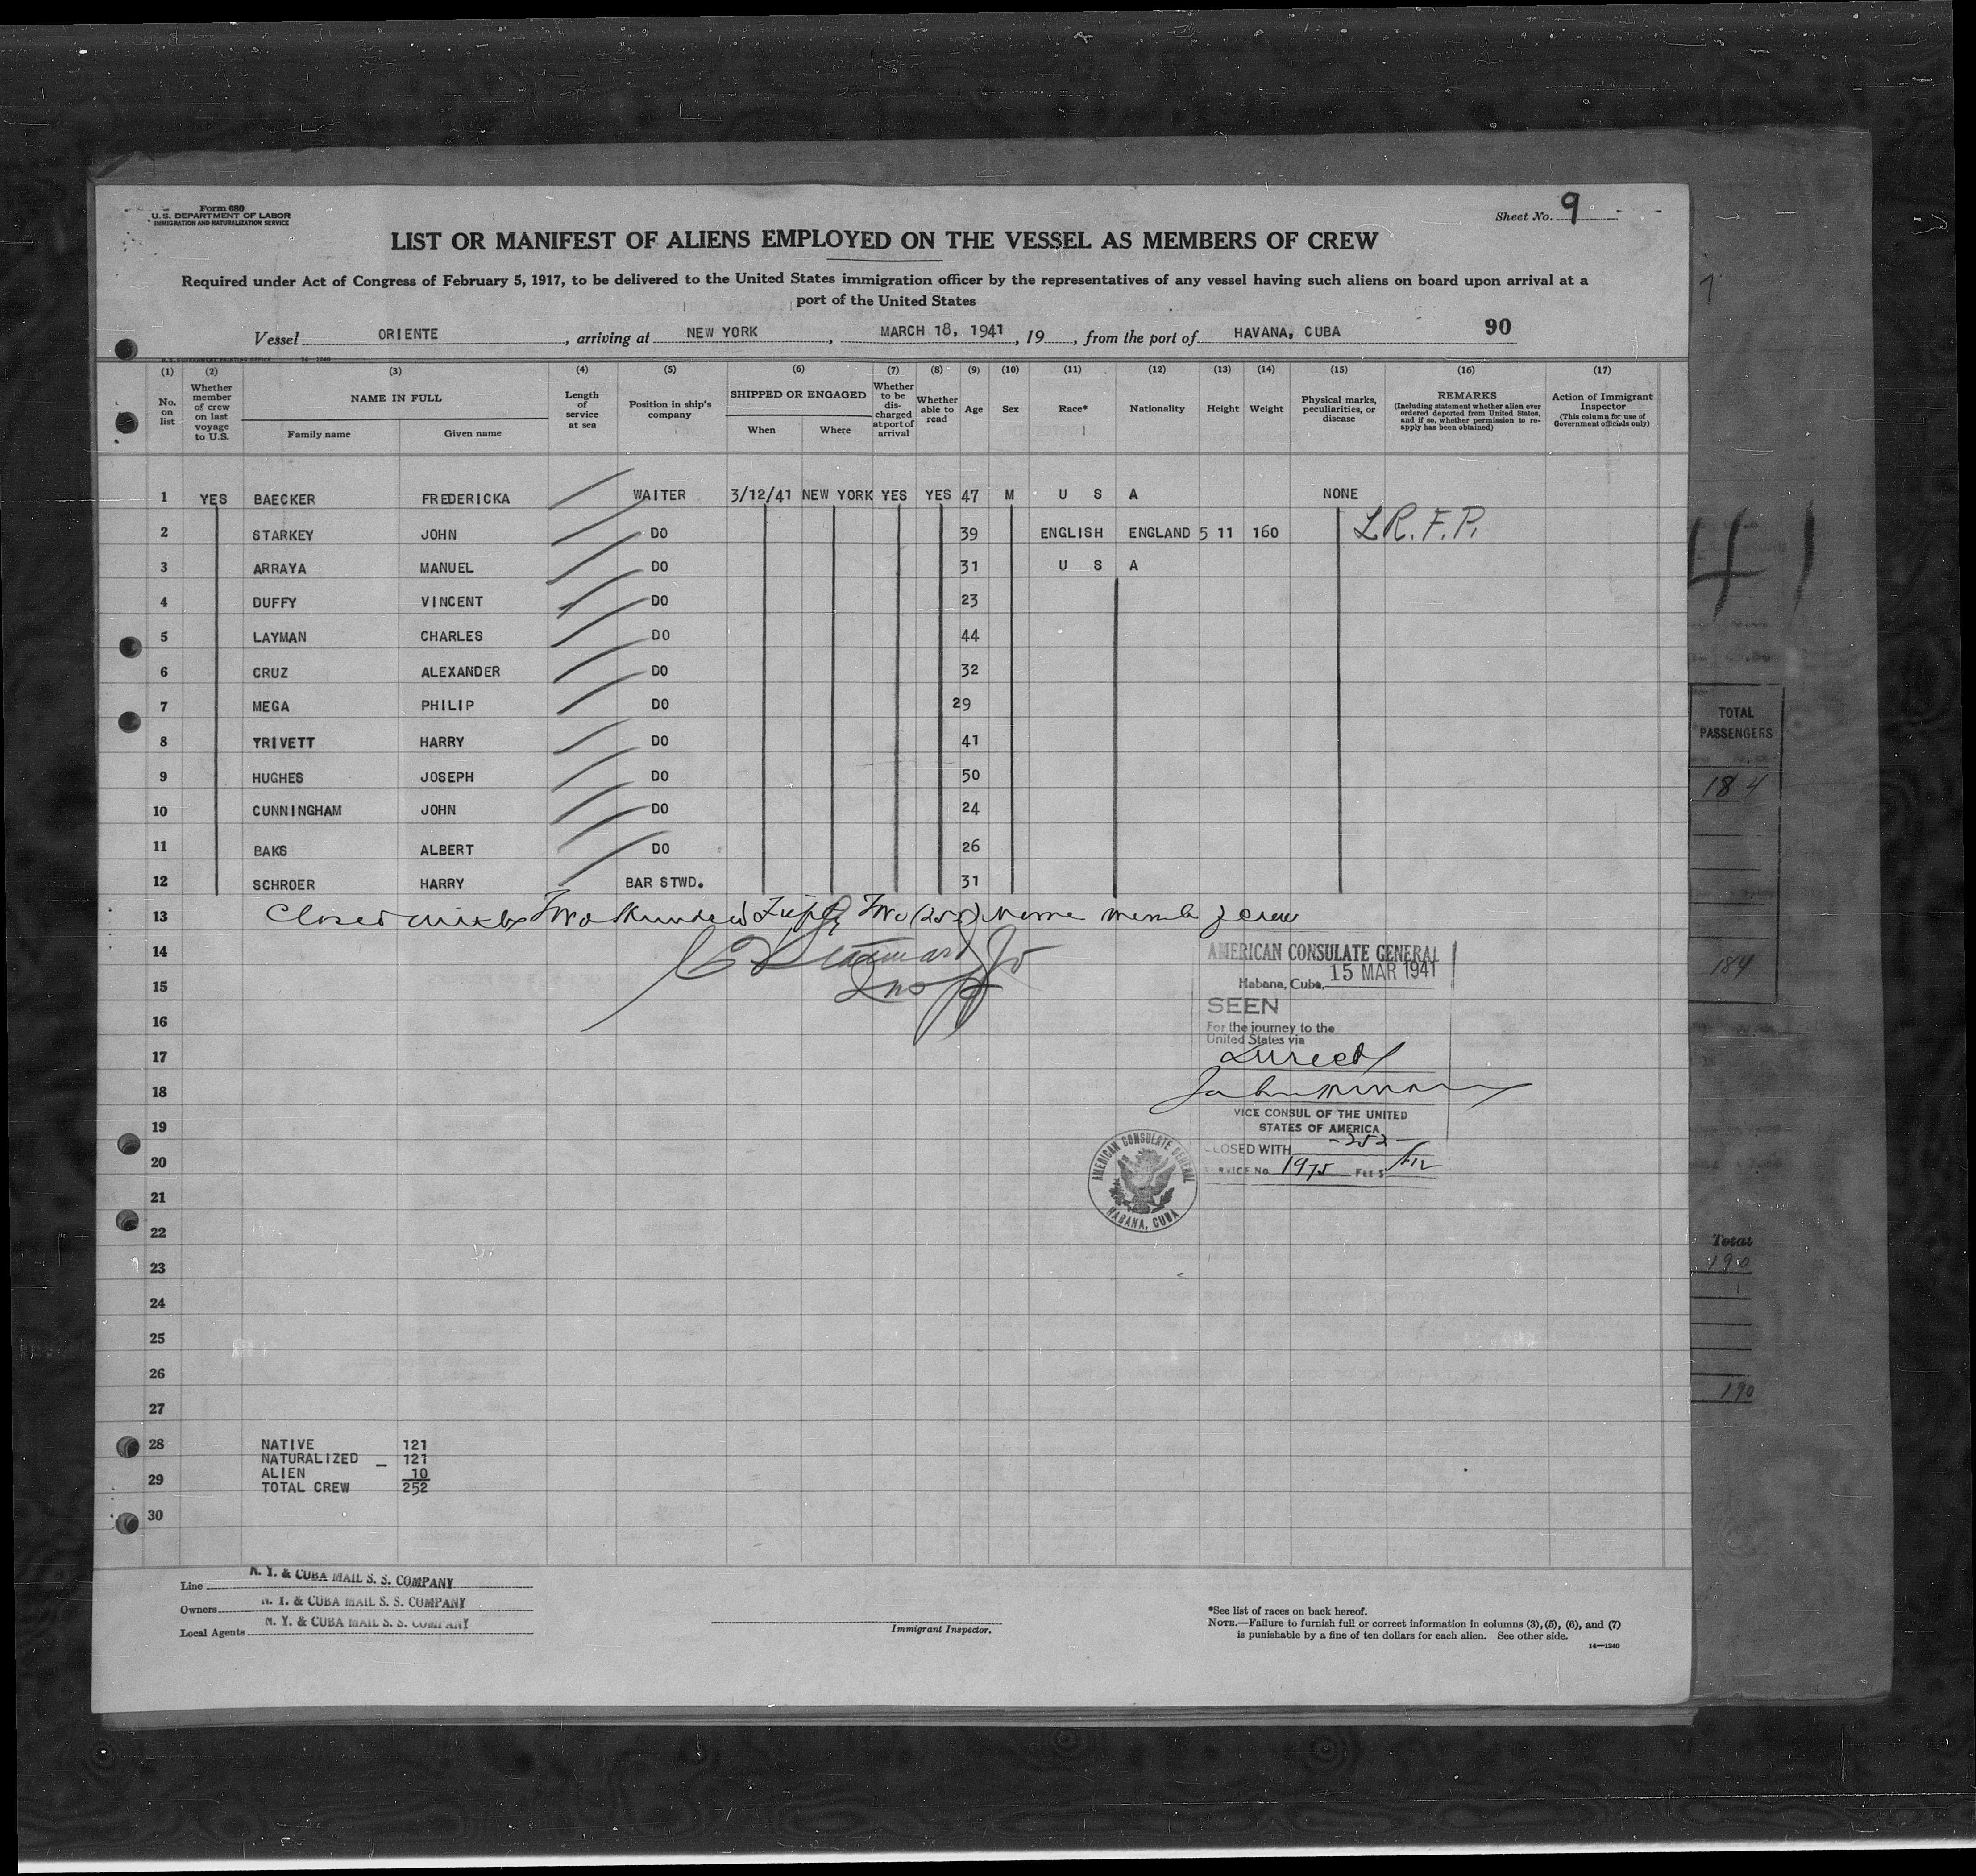 Form 680
U.S. DEPARTMENT OF LABOR
IMMIGRATION AND NATURALIZATION SERVICE
Sheet No. 9
LIST OR MANIFEST OF ALIENS EMPLOYED ON THE VESSEL AS MEMBERS OF CREW
Required under Act of Congress of February 5, 1917, to be delivered to the United States immigration officer by the representatives of any vessel having such aliens on board upon arrival at a
port of the United States
Vessel ORIENTE, arriving at NEW YORK, MARCH 18, 1941, 19, from the port of HAVANA, CUBA 90
U.S. GOVERNMENT PRINTING OFFICE 14—1240
(1) (2) (3) (4) (5) (6) (7) (8) (9) (10) (11) (12) (13) (14) (15) (16) (17)
No. on list
Whether member of crew on last voyage to U.S.
NAME IN FULL
Family name
Given name
Length of service at sea
Position in ship's company
SHIPPED OR ENGAGED
When
Where
Whether to be discharged at port of arrival
Whether able to read
Age
Sex
Race*
Nationality
Height
Weight
Physical marks, peculiarities, or disease
REMARKS
(Including statement whether alien ever ordered deported from United States, and if so, whether permission to reapply has been obtained)
Action of Immigrant Inspector
(This column for use of Government officials only)
1 YES BAECKER FREDERICKA WAITER 3/12/41 NEW YORK YES YES 47 M U S A NONE
2 STARKEY JOHN DO 39 ENGLISH ENGLAND 5 11 160 L.R.F.P.
3 ARRAYA MANUEL DO 31 U S A
4 DUFFY VINCENT DO 23
5 LAYMAN CHARLES DO 44
6 CRUZ ALEXANDER DO 32
7 MEGA PHILIP DO 29
8 TRIVETT HARRY DO 41
9 HUGHES JOSEPH DO 50
10 CUNNINGHAM JOHN DO 24
11 BAKS ALBERT DO 26
12 SCHROER HARRY BAR STWD. 31
13 Closed with Two Hundred Fifty Two (252) members crew
14
15
16
17
18
19
20
21
22
23
24
25
26
27
28
29
30
AMERICAN CONSULATE GENERAL
Habana, Cuba, 15 MAR 1941
SEEN
For the journey to the
United States via
Direct
VICE CONSUL OF THE UNITED
STATES OF AMERICA
CLOSED WITH -252-
SERVICE No. 1975 FEE $
AMERICAN CONSULATE GENERAL
HABANA, CUBA
NATIVE 121
NATURALIZED – 121
ALIEN 10
TOTAL CREW 252
Line N. Y. & CUBA MAIL S. S. COMPANY
Owners N. Y. & CUBA MAIL S. S. COMPANY
Local Agents N. Y. & CUBA MAIL S. S. COMPANY
Immigrant Inspector.
*See list of races on back hereof.
NOTE.—Failure to furnish full or correct information in columns (3), (5), (6), and (7)
is punishable by a fine of ten dollars for each alien. See other side.
14—1240
41
TOTAL
PASSENGERS
184
184
Total
190
190